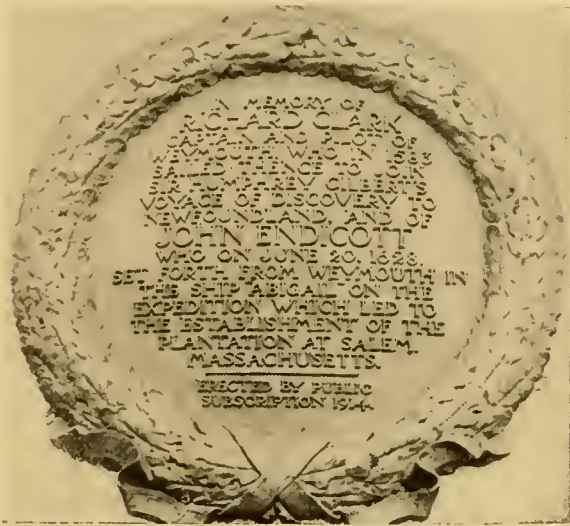 IN MEMORY OF
RICHARD CLARK
CAPTAIN AND PILOT OF
WEYMOUTH WHO IN 1583
SAILED THENCE TO JOIN
SIR HUMPHREY GILBERT'S
VOYAGE OF DISCOVERY TO
NEWFOUNDLAND, AND OF
JOHN ENDICOTT
WHO ON JUNE 20, 1628
SET FORTH FROM WEYMOUTH IN
THE SHIP ABIGAIL ON THE
EXPEDITION WHICH LED TO
THE ESTABLISHMENT OF THE
PLANTATION AT SALEM,
MASSACHUSETTS.
ERECTED BY PUBLIC
SUBSCRIPTION 1914.